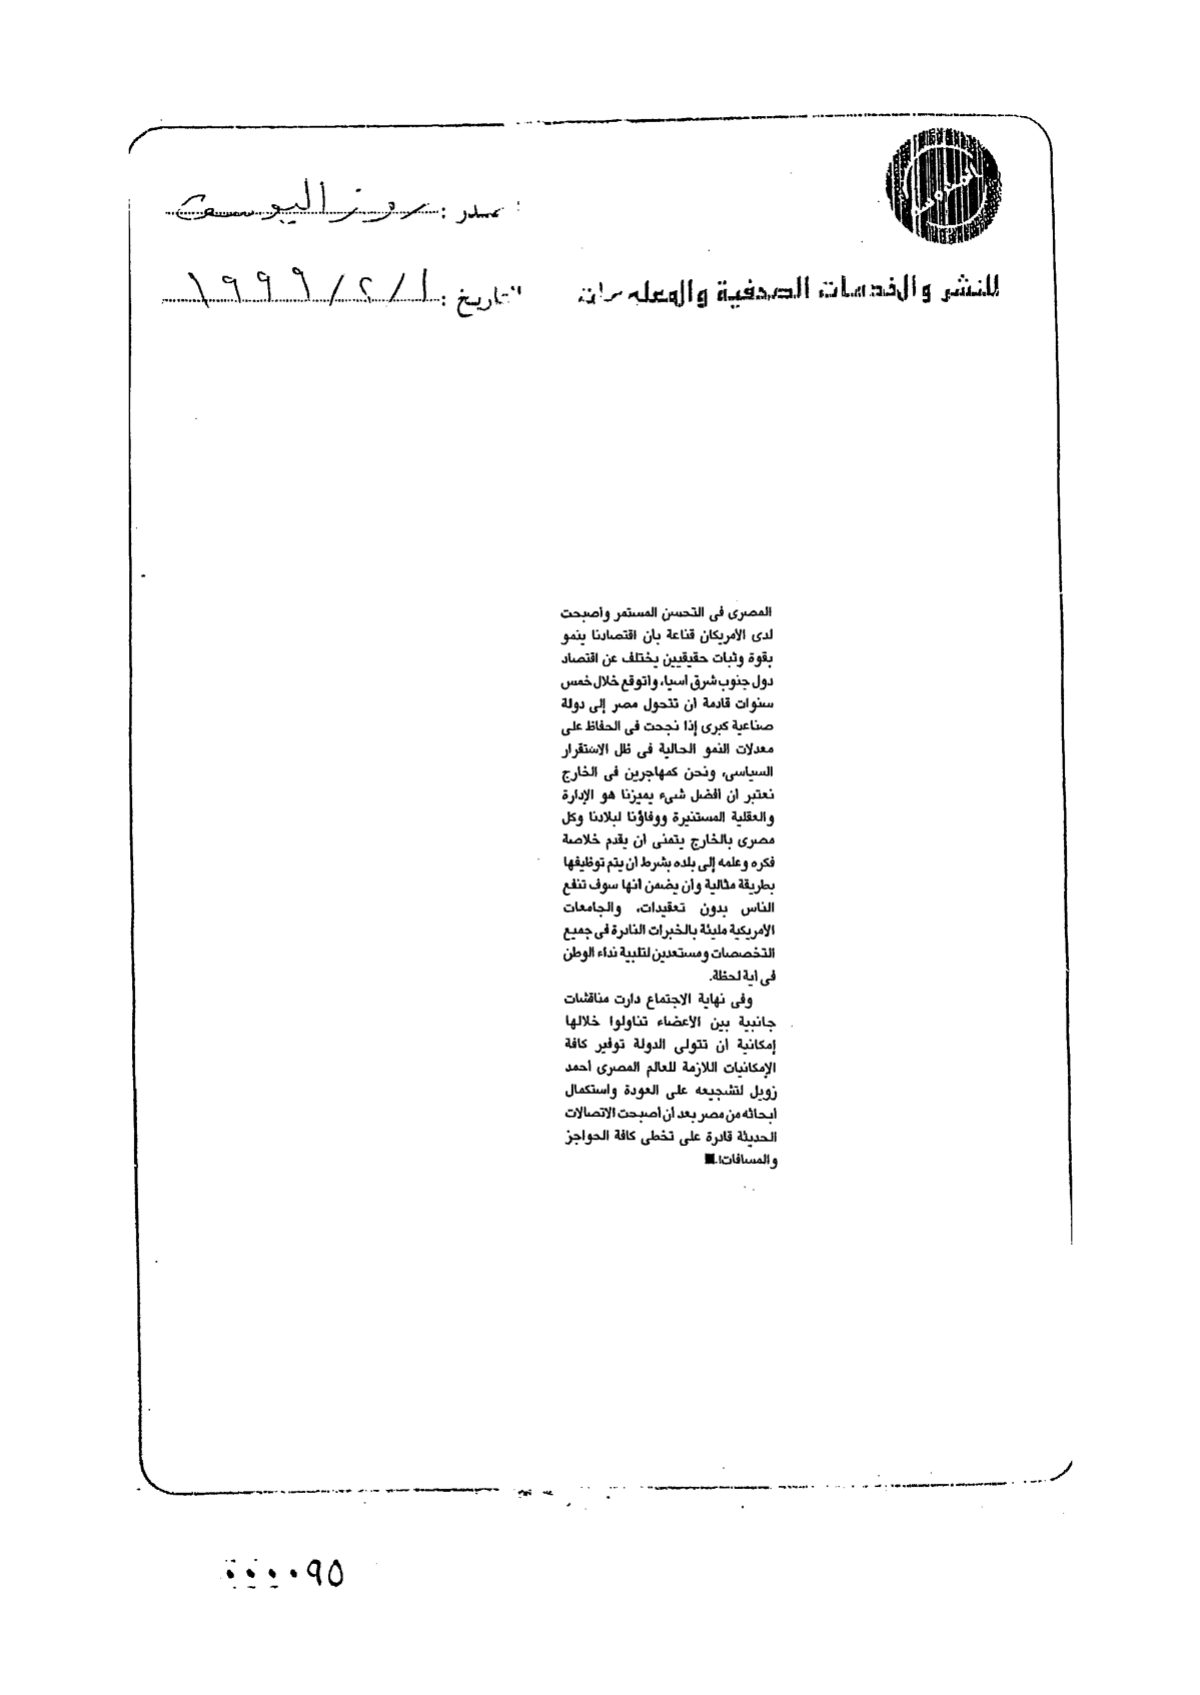 المصدر : روز اليوسف
للنشر والخدمات الصحفية والمعلومات
التاريخ : ١/٢/١٩٩٩
المصرى فى التحسن المستمر واصبحت
لدى الامريكان قناعة بان اقتصادنا ينمو
بقوة وثبات حقيقيين يختلف عن اقتصاد
دول جنوب شرق اسيا، واتوقع خلال خمس
سنوات قادمة ان تتحول مصر إلى دولة
صناعية كبرى إذا نجحت فى الحفاظ على
معدلات النمو الحالية فى ظل الاستقرار
السياسى، ونحن كمهاجرين فى الخارج
نعتبر ان افضل شىء يميزنا هو الإدارة
والعقلية المستنيرة ووفاؤنا لبلادنا وكل
مصرى بالخارج يتمنى ان يقدم خلاصة
فكره وعلمه إلى بلده بشرط ان يتم توظيفها
بطريقة مثالية وان يضمن انها سوف تنفع
الناس بدون تعقيدات، والجامعات
الامريكية مليئة بالخبرات النادرة فى جميع
التخصصات ومستعدين لتلبية نداء الوطن
فى اية لحظة.
وفى نهاية الاجتماع دارت مناقشات
جانبية بين الاعضاء تناولوا خلالها
إمكانية ان تتولى الدولة توفير كافة
الإمكانيات اللازمة للعالم المصرى احمد
زويل لتشجيعه على العودة واستكمال
ابحاثه من مصر بعد ان اصبحت الاتصالات
الحديثة قادرة على تخطى كافة الحواجز
والمسافات!.■
٠٠٠٠٩٥